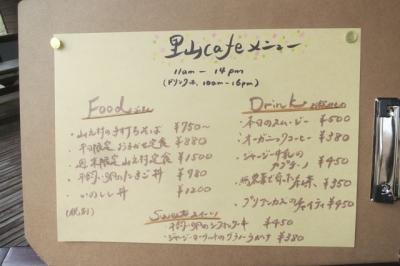 里山cafeメニュー
11am – 14pm
(ドリンクは、10am〜16pm)
Food
・山之村の手打ちそば ¥750〜
・平日限定 おまかせ定食 ¥880
・週末限定 山之村定食 ¥1500
・平飼い卵のたまご丼 ¥980
・いのしし丼 ¥1200
(税別)
Drink
・本日のスムージー ¥500
・オーガニックコーヒー ¥380
・ジャージー牛乳のカプチーノ ¥450
¥350
チャイティ ¥450
Sweets スイーツ
平飼い卵のシフォンケーキ ¥450
・ジャージーヨーグルトの ¥380